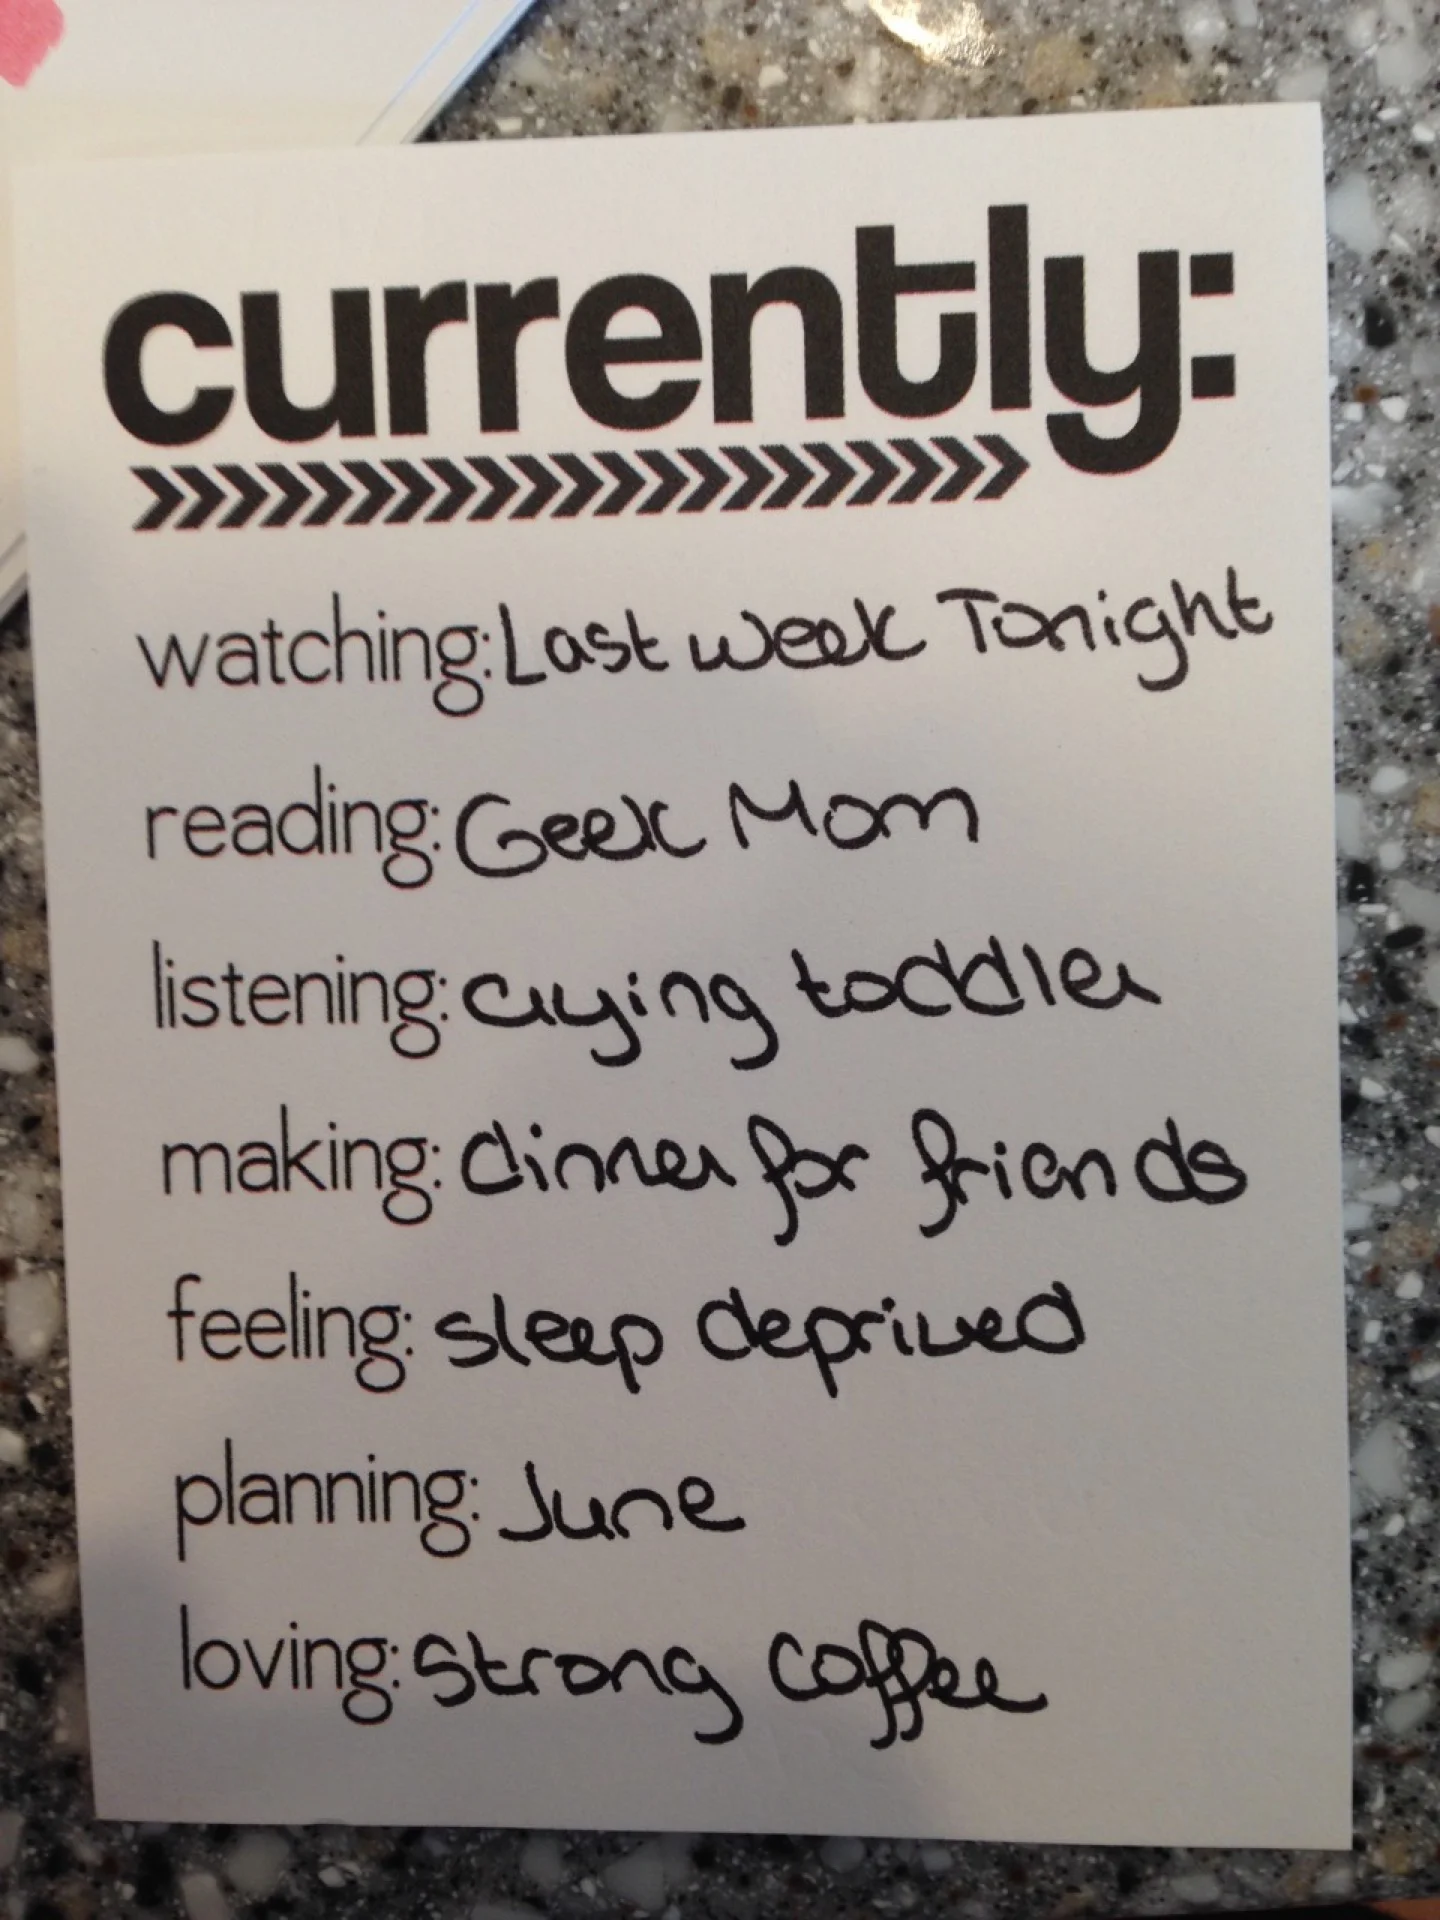 currently:
watching: Last week Tonight
reading: Geek Mom
listening: crying toddler
making: dinner for friends
feeling: sleep deprived
planning: June
loving: strong coffee